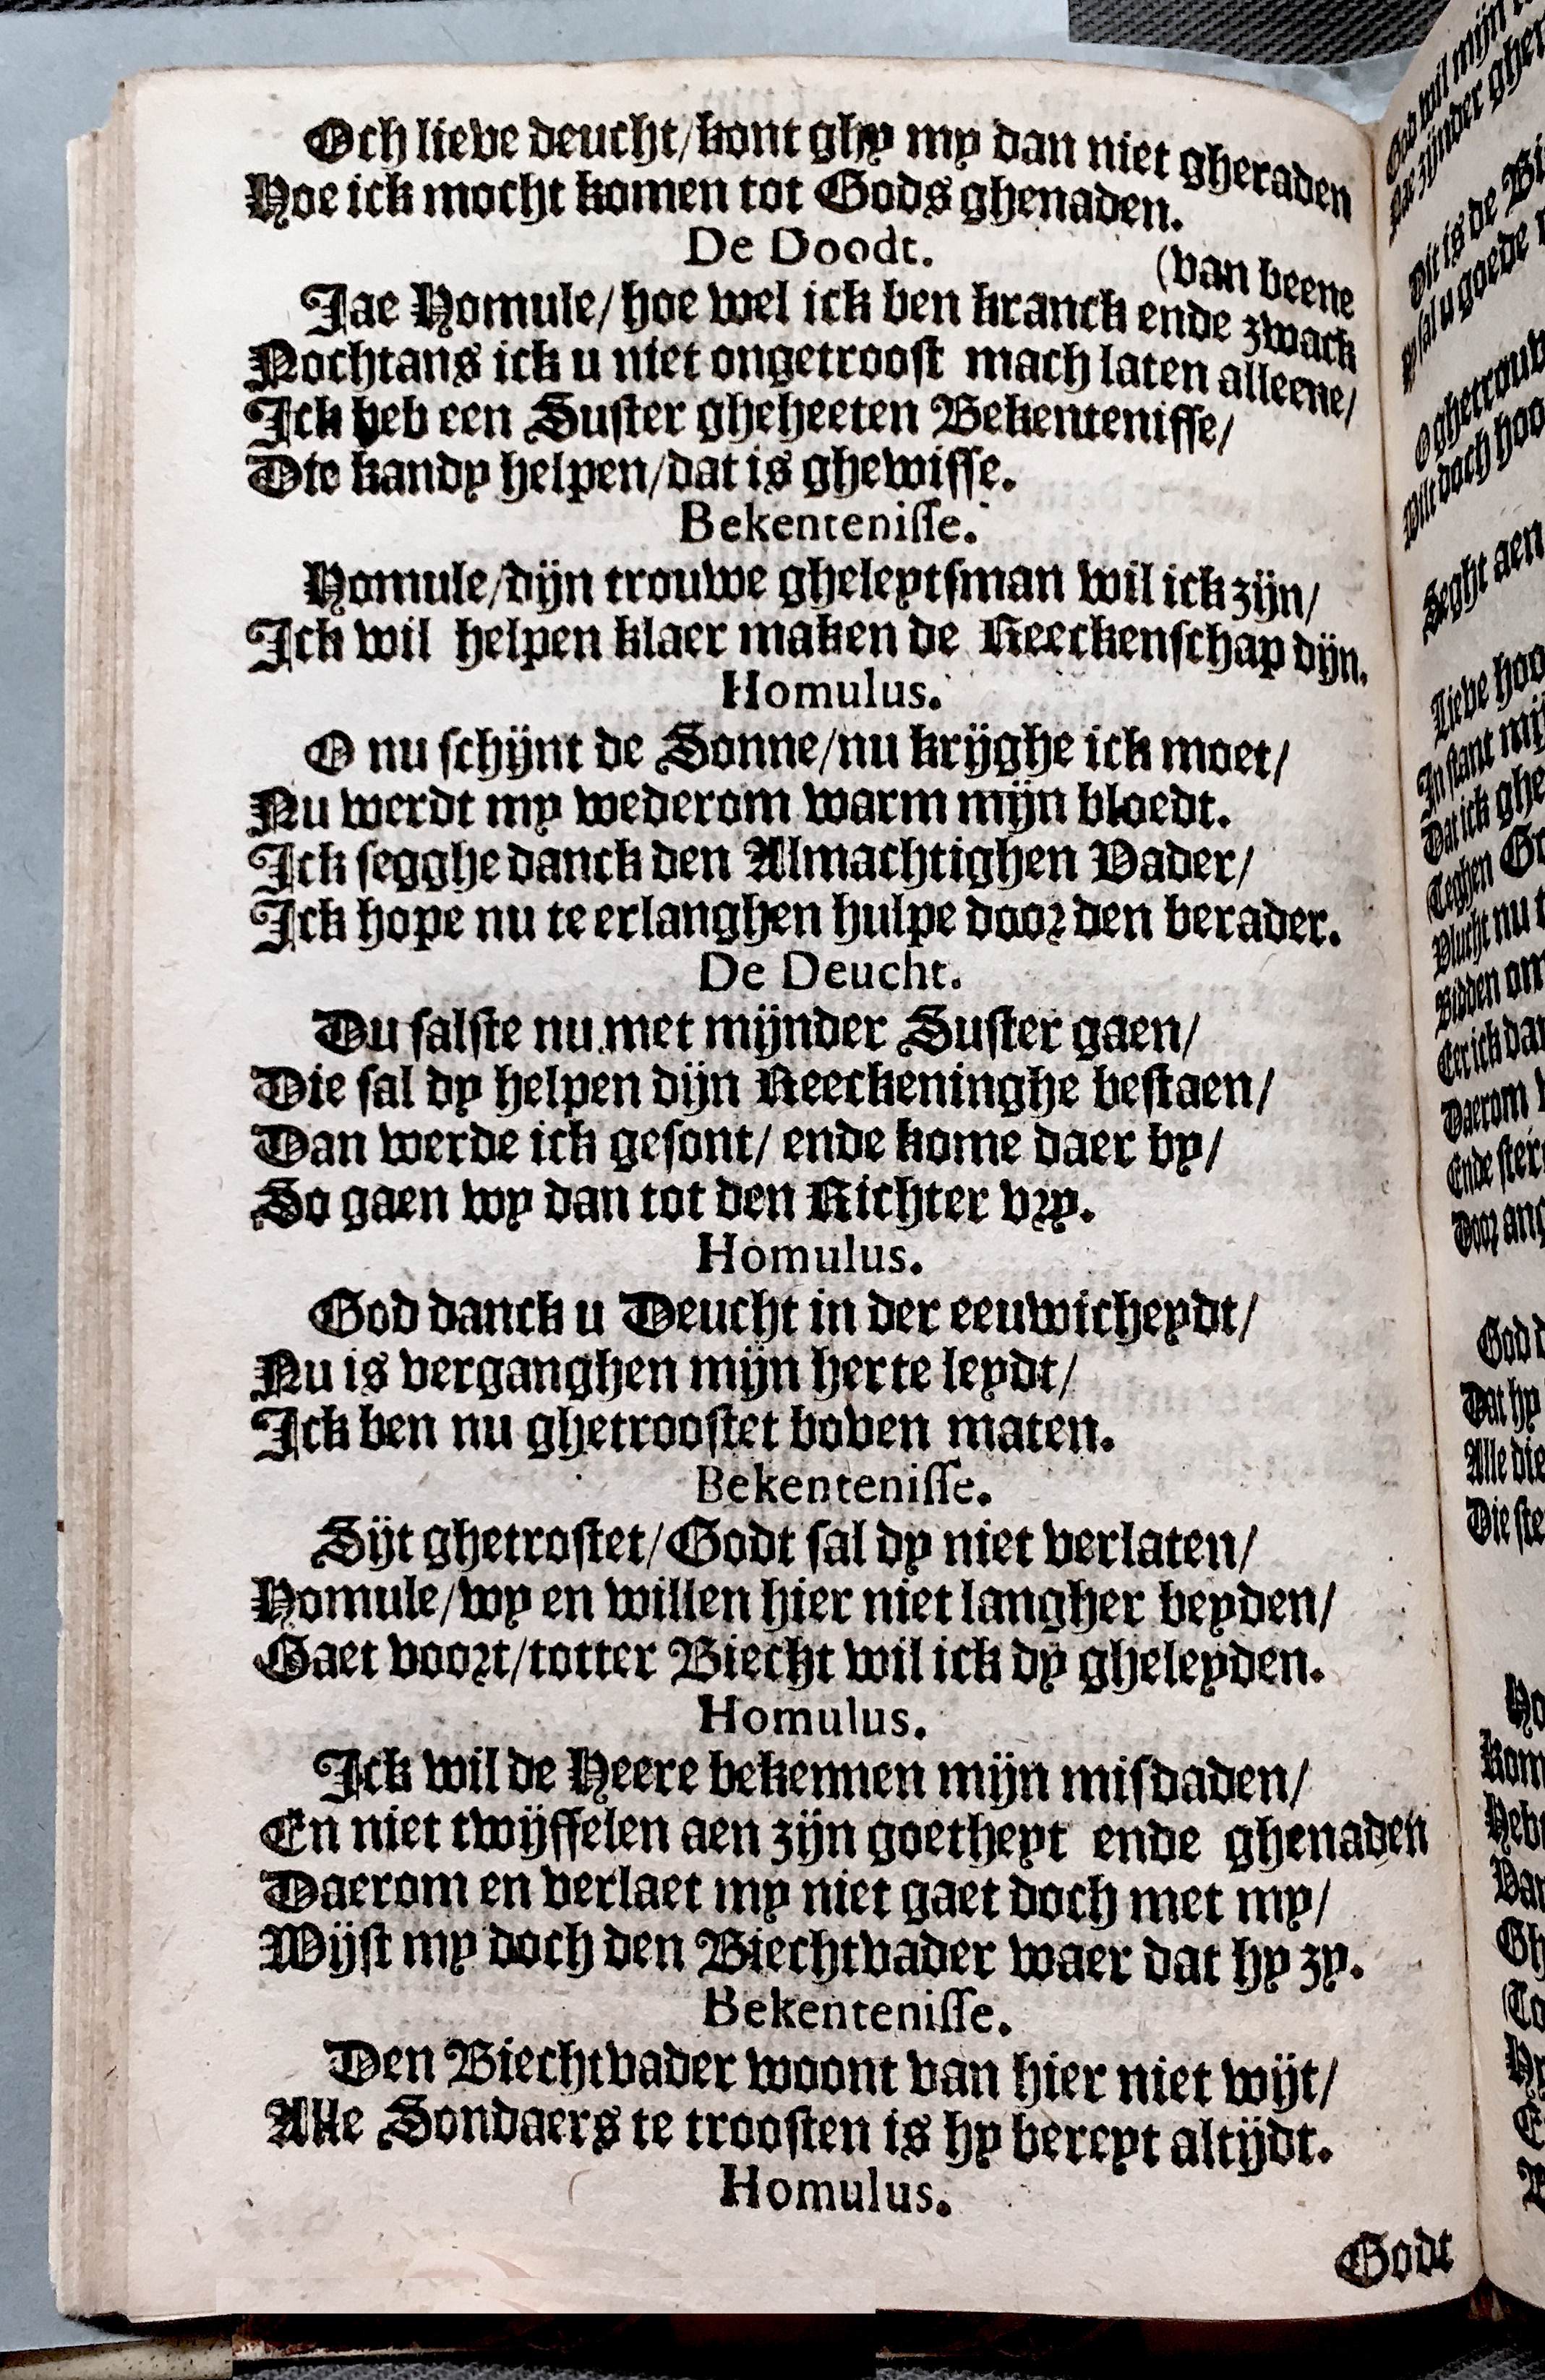 Och lieve deucht/kont ghy my dan niet gheraden
Hoe ick mocht komen tot Gods ghenaden.
De Doodt.
(van beene
Jae Homule/hoe wel ick ben kranck ende zwack
Nochtans ick u niet ongetroost mach laten alleene/
Ick heb een Suster gheheeten Bekentenisse/
Die kandy helpen/dat is ghewisse.
Bekentenisse.
Homule/dijn trouwe gheleytsman wil ick zijn/
Ick wil helpen klaer maken de Reeckenschap dijn.
Homulus.
O nu schijnt de Sonne/nu krijghe ick moet/
Nu werdt my wederom warm mijn bloedt.
Ick segghe danck den Almachtighen Vader/
Ick hope nu te erlanghen hulpe door den berader.
De Deucht.
Du salste nu met mijnder Suster gaen/
Die sal dy helpen dijn Reeckeninghe bestaen/
Dan werde ick gesont/ ende kome daer by/
So gaen wy dan tot den Richter vry.
Homulus.
God danck u Deucht in der eeuwicheydt/
Nu is verganghen mijn herte leydt/
Ick ben nu ghetroostet boven maten.
Bekentenisse.
Sijt ghetrostet/Godt sal dy niet verlaten/
Homule/wy en willen hier niet langher beyden/
Gaet voort/totter Biecht wil ick dy gheleyden.
Homulus.
Ick wil de Heere bekennen mijn misdaden/
En niet twijffelen aen zijn goetheyt ende ghenaden
Daerom en verlaet my niet gaet doch met my/
Wijst my doch den Biechtvader waer dat hy zy.
Bekentenisse.
Den Biechtvader woont van hier niet wijt/
Alle Sondaers te troosten is hy bereyt altijdt.
Homulus.
Godt